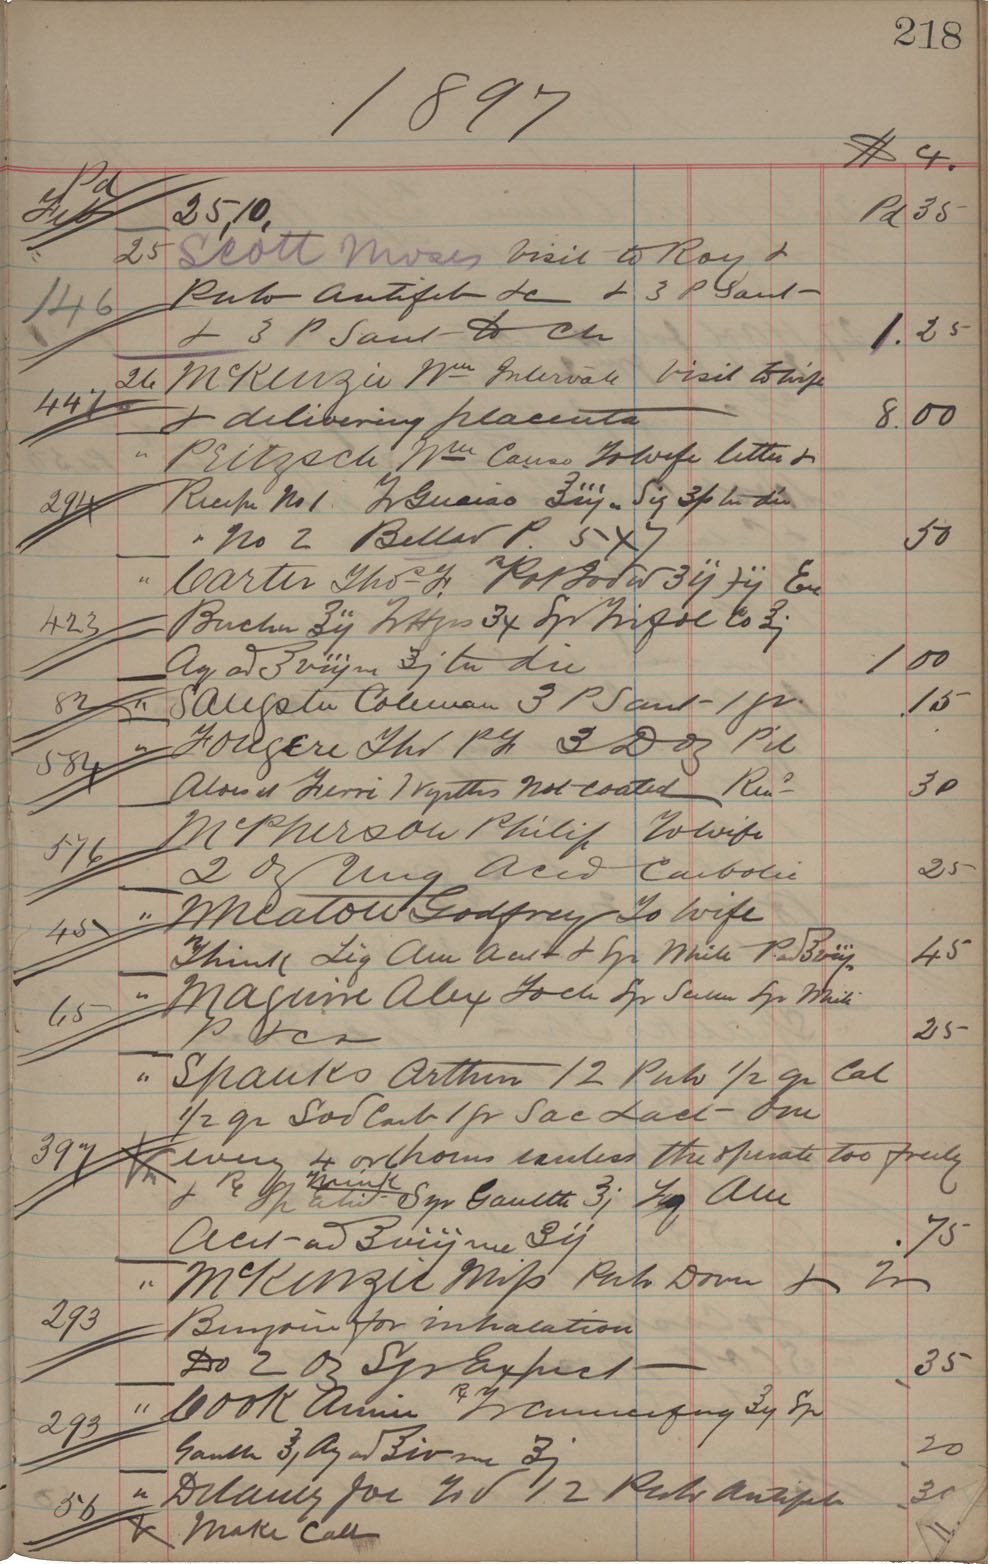 218
1897
$ c.
Pd
Feb 25,10, Pd 35
" 25 Scott Moses Visit to Roy &
146 Pulv Antifeb &c & 3 P Sant
& 3 P Sant & Ch 1.25
26 McKenzie Wm Intervale Visit to wife
447 & delivering placenta 8.00
" Peitzsch Wm Canso To wife letter &
294 Recipe No 1. Tr Guaiac Sig ter die
" No 2 Bellad P. 50
" Carter Thos F. Pot Iod
423 Buchu Tr Hyos ʒx Syr Trifol Co ℥j
Aq ad ℥viij me ʒj ter die 1 00
82 " Sangster Coleman 3 P Sant 1 gr. .15
584 " Fougere Thos P F 3 Doz Pil
Aloes et Ferri Wyeths Not coated 30
576 McPherson Philip To wife
2 Oz Ung Acid Carbolic 25
45 " Wheaton Godfrey To wife
Liq Am Acet & Syr White P ad ℥viij 45
65 " Maguire Alex To ch Syr Syr White
P &ca 25
" Spanks Arthur 12 Pulv 1/2 gr Cal
1/2 gr Sod Carb 1 gr Sac Lact One
397 every 4 or hours unless the operate too freely
& Rx Syr Gaulth ℥j Liq Am
Acet ad ℥viij me ʒij .75
" McKenzie Miss Pulv Dover & Tr
293 Benzoin for inhalation
Do 2 Oz Syr Expect .35
" Cook Annie Rx Syr
293 Gaulth ʒj Aq ad ℥iv me ʒj .20
56 " Delaney Joe 12 Pulv Antifeb .30
& Make Call